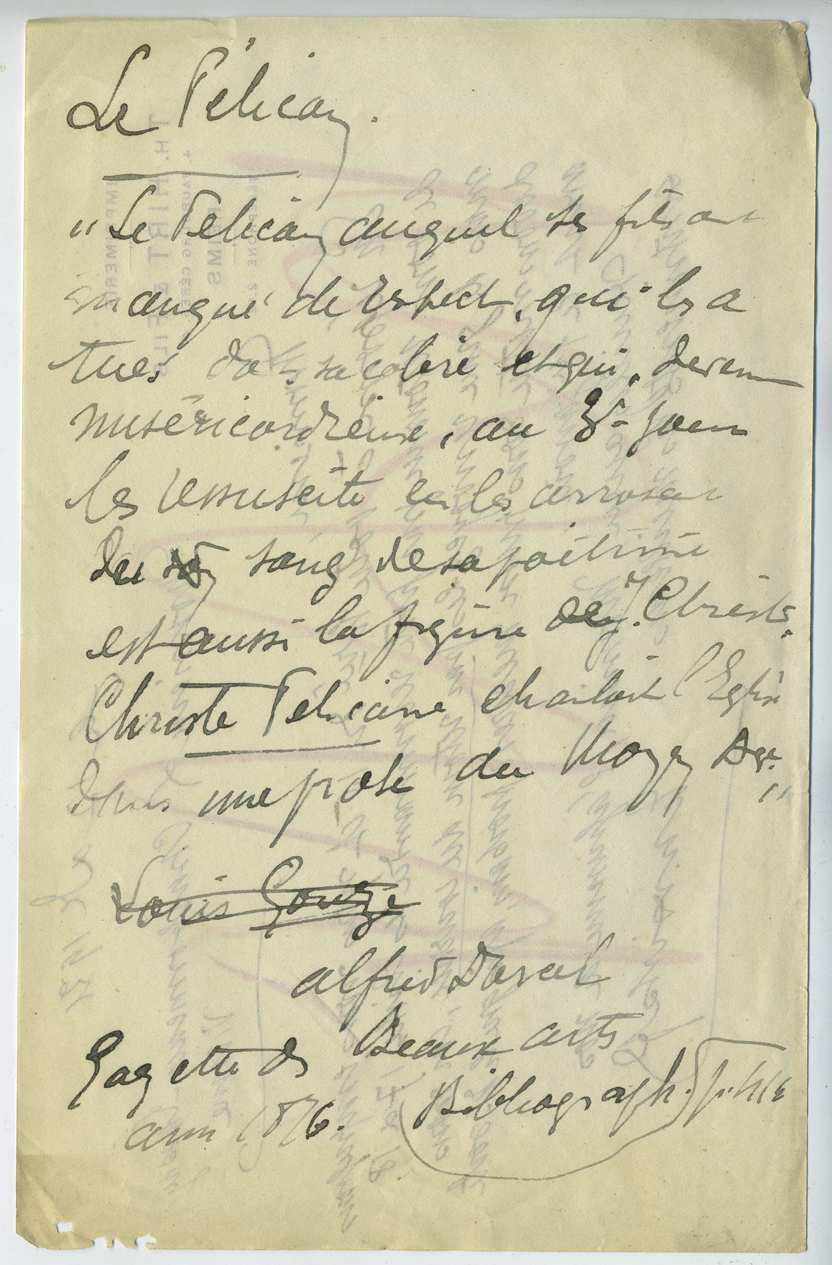 Le Pélican.
"Le Pélican auquel ses fils ont
manqué de respect, qui les a
tués dans sa colère et qui, devenu
miséricordieux, au 3e jour
les ressuscite en les arrosant
du sang de sa poitrine
est aussi la figure de J. Christ.
Christe Pelicane chantait l'Eglise
dans une prose du Moyen Age."
Louis Gonze
alfred Darcel
Gazette des Beaux arts
ann 1876. Bibliograph.